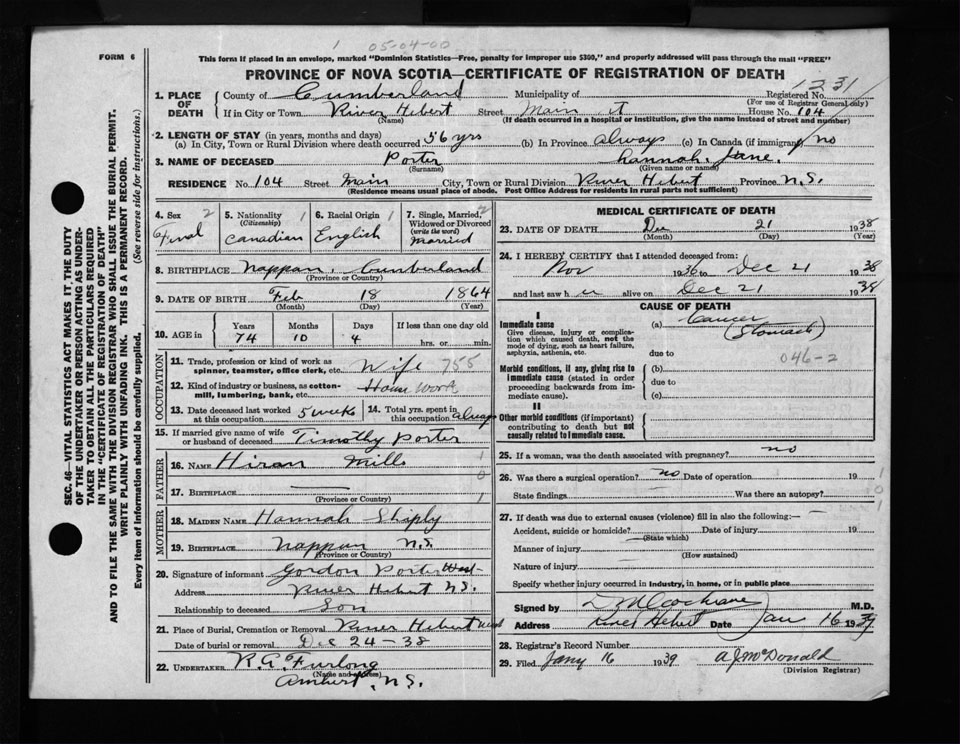 05-04-00
FORM 6
This form if placed in an envelope, marked "Dominion Statistics—Free, penalty for improper use $300," and properly addressed will pass through the mail "FREE"
PROVINCE OF NOVA SCOTIA—CERTIFICATE OF REGISTRATION OF DEATH
1231
1. PLACE OF DEATH
County of Cumberland Municipality of Registered No.
(For use of Registrar General only)
If in City or Town River Hebert Street Main St House No. 104
(Name) (If death occurred in a hospital or institution, give the name instead of street and number)
2. LENGTH OF STAY (in years, months and days)
(a) In City, Town or Rural Division where death occurred 56 yrs (b) In Province always (c) In Canada (if immigrant) no
3. NAME OF DECEASED Porter Hannah Jane.
(Surname) (Given name or names)
RESIDENCE No. 104 Street Main City, Town or Rural Division River Hebert Province N.S.
(Residence means usual place of abode. Post Office Address for residents in rural parts not sufficient)
4. Sex 2
5. Nationality 1
(Citizenship)
Canadian
6. Racial Origin 1
English
7. Single, Married, Widowed or Divorced
(write the word)
2
Married
8. BIRTHPLACE Nappan, Cumberland
(Province or Country)
9. DATE OF BIRTH Feb 18 1864
(Month) (Day) (Year)
10. AGE in Years Months Days If less than one day old
74 10 4 hrs. or min.
OCCUPATION
11. Trade, profession or kind of work as spinner, teamster, office clerk, etc. Wife 755
12. Kind of industry or business, as cotton-mill, lumbering, bank, etc. House Work
13. Date deceased last worked at this occupation 5 weeks
14. Total yrs. spent in this occupation always
15. If married give name of wife or husband of deceased Timothy Porter
FATHER
16. NAME Hiram Mills
17. BIRTHPLACE —
(Province or Country)
MOTHER
18. MAIDEN NAME Hannah Shiply
19. BIRTHPLACE Nappan N.S.
(Province or Country)
20. Signature of informant Gordon Porter West
Address River Hebert N.S.
Relationship to deceased Son
21. Place of Burial, Cremation or Removal River Hebert West
Date of burial or removal Dec 24-38
22. UNDERTAKER R.A. Furlong
(Name and address)
Amherst, N.S.
MEDICAL CERTIFICATE OF DEATH
23. DATE OF DEATH Dec 21 1938
(Month) (Day) (Year)
24. I HEREBY CERTIFY that I attended deceased from:
Nov 1936 to Dec 21 1938
and last saw h er alive on Dec 21 1938
CAUSE OF DEATH
I
Immediate cause
Give disease, injury or complication which caused death, not the mode of dying, such as heart failure, asphyxia, asthenia, etc.
(a) Cancer
(Stomach)
due to 046-2
Morbid conditions, if any, giving rise to immediate cause (stated in order proceeding backwards from immediate cause).
(b)
due to
(c)
II
Other morbid conditions (if important) contributing to death but not causally related to immediate cause.
25. If a woman, was the death associated with pregnancy? no
26. Was there a surgical operation? no Date of operation 19
State findings Was there an autopsy?
27. If death was due to external causes (violence) fill in also the following:
Accident, suicide or homicide? Date of injury 19
(State which)
Manner of injury
(How sustained)
Nature of injury
Specify whether injury occurred in industry, in home, or in public place
Signed by D M Cochrane M.D.
Address River Hebert Date Jan 16 1939
28. Registrar's Record Number
29. Filed Jany 16 1939 A J McDonald
(Division Registrar)
SEC. 46—VITAL STATISTICS ACT MAKES IT THE DUTY
OF THE UNDERTAKER OR PERSON ACTING AS UNDER-
TAKER TO OBTAIN ALL THE PARTICULARS REQUIRED
IN THE "CERTIFICATE OF REGISTRATION OF DEATH"
AND TO FILE THE SAME WITH THE DIVISION REGISTRAR WHO SHALL ISSUE THE BURIAL PERMIT.
WRITE PLAINLY WITH UNFADING INK. THIS IS A PERMANENT RECORD.
Every item of information should be carefully supplied. (See reverse side for instructions.)